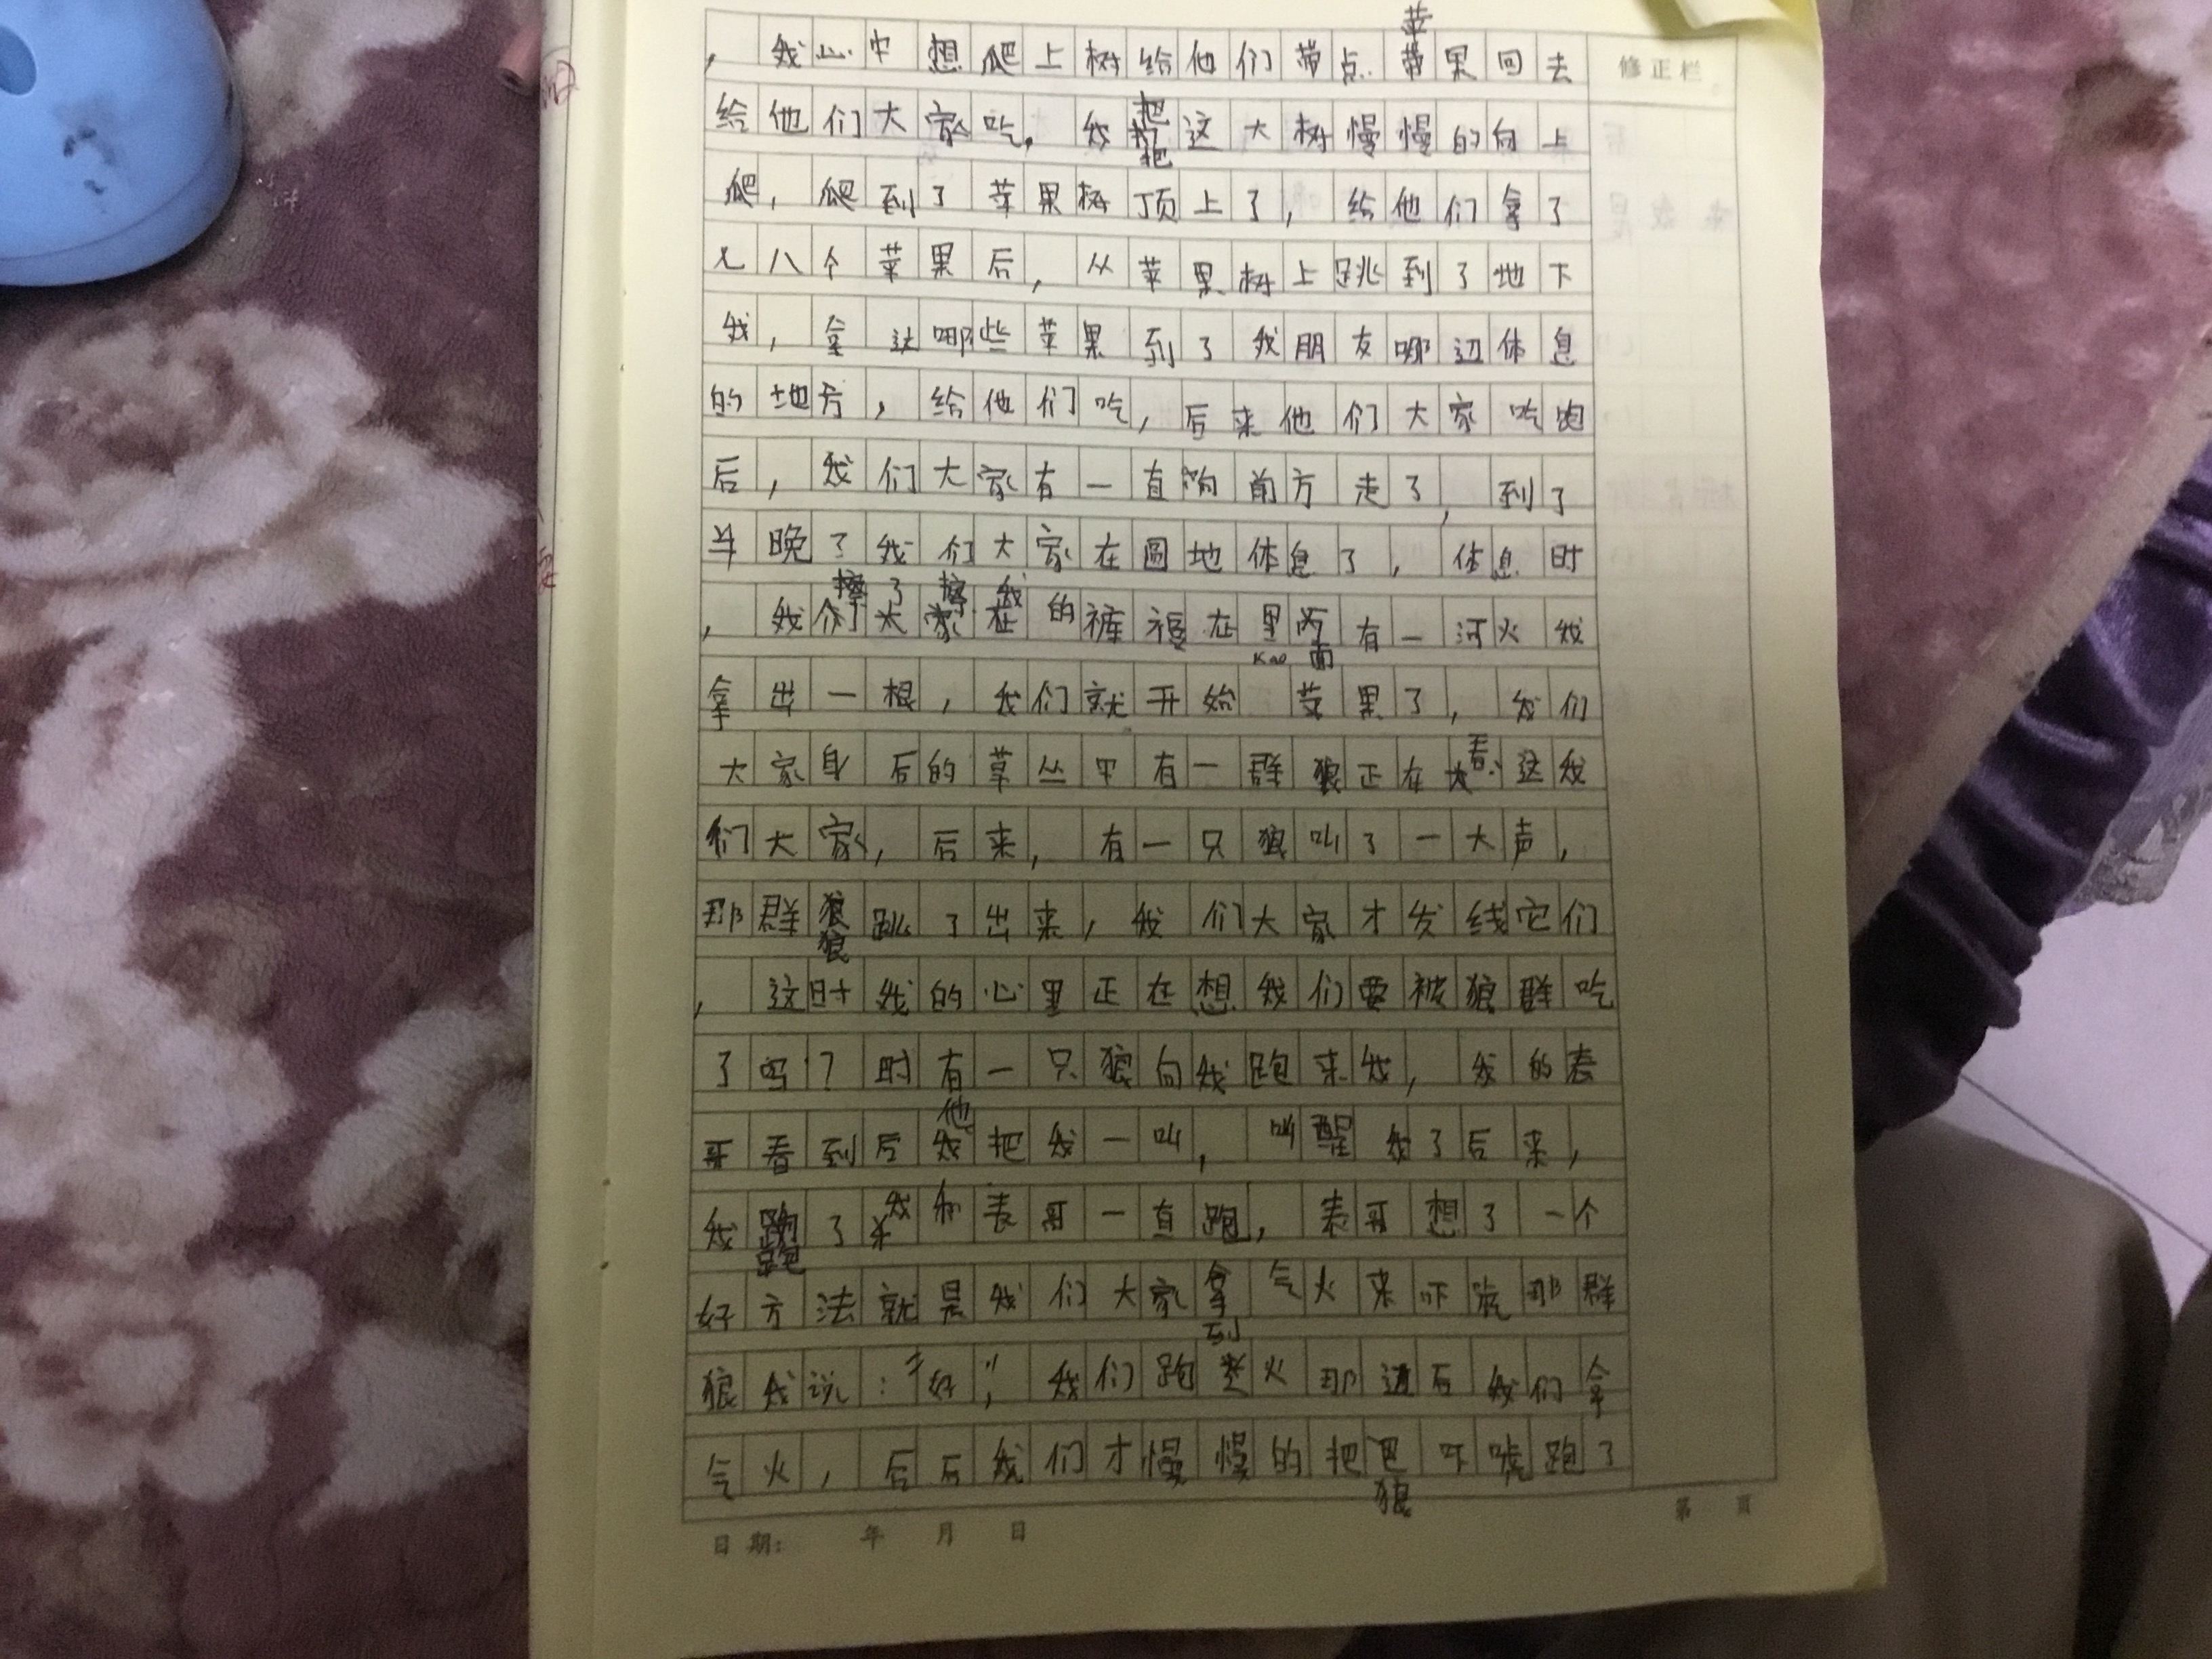 ，我心中想爬上树给他们带点苹果回去
修正栏
给他们大家吃，我把这大树慢慢的向上
爬，爬到了苹果树顶上了，给他们拿了
七八个苹果后，从苹果树上跳到了地下
我，拿达哪些苹果到了我朋友哪边休息
的地方，给他们吃，后来他们大家吃跑
后，我们大家有一直向前方走了，到了
半晚了我们大家在圆地休息了，休息时
，我擦了擦我的裤裙在里面有一河火我
拿出一根，我们就开始 kao 苹果了，我们
大家身后的草丛中有一群狼正在看这我
们大家，后来，有一只狼叫了一大声，
那群狼跳了出来，我们大家才发线它们
，这时我的心里正在想我们要被狼群吃
了吗？时有一只狼向我跑来我，我的表
哥看到后他把我一叫，叫醒我了后来，
我跑了我和表哥一直跑，表哥想了一个
好方法就是我们大家拿气火来吓唬那群
狼我说：“好，”我们跑到火那边后我们拿
气火，后后我们才慢慢的把狼吓唬跑了
日期： 年 月 日
第 页